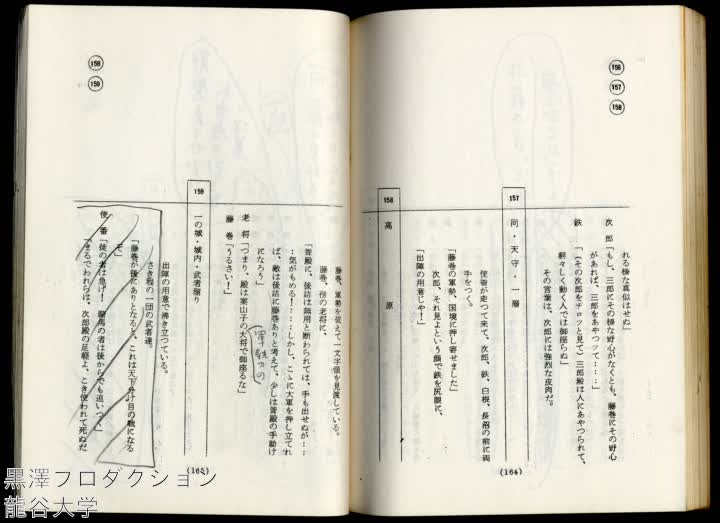 156
157
158
れる様な真似はせぬ」
次 郎「もし、三郎にその様な野心がなくとも、藤巻にその野心
があれば、三郎をあやつって‥‥」
鉄 「(その次郎をチロッと見て)三郎殿は人にあやつられて、
軽々しく動く人では御座らぬ」
その言葉は、次郎には強烈な皮肉だ。
157
同・天守・一層
使者が走って来て、次郎、鉄、白根、長沼の前に両
手をつく。
「藤巻の軍勢、国境に押し寄せました」
次郎、それ見よという顔で鉄を尻眼に、
「出陣の用意じゃ!」
158
高 原
(164)
158
159
藤巻、軍勢を従えて一文字領を見渡している。
藤巻、傍の老将に、
「聟殿に、後詰は無用と断わられては、手も出せぬが‥‥
‥気がもめる!‥‥しかし、こゝに大軍を押し立てれ
ば、敵は後詰に藤巻ありと考えて、少しは聟殿の手助け
になろう」
老 将「つまり、殿は案山子の大将で御座るな」
藤 巻「うるさい!」
159
一の城・城内・武者溜り
出陣の用意で沸き立っている。
さき程の一団の武者達。
「藤巻が後にありとなると、これは天下分け目の戦になる
ぞ」
使 番「徒の者は急げ! 騎馬の者は後からでも追いつく」
「まるでわれらは、次郎殿の足軽よ、こき使われて死ぬだ
(165)
黒澤プロダクション
龍谷大学